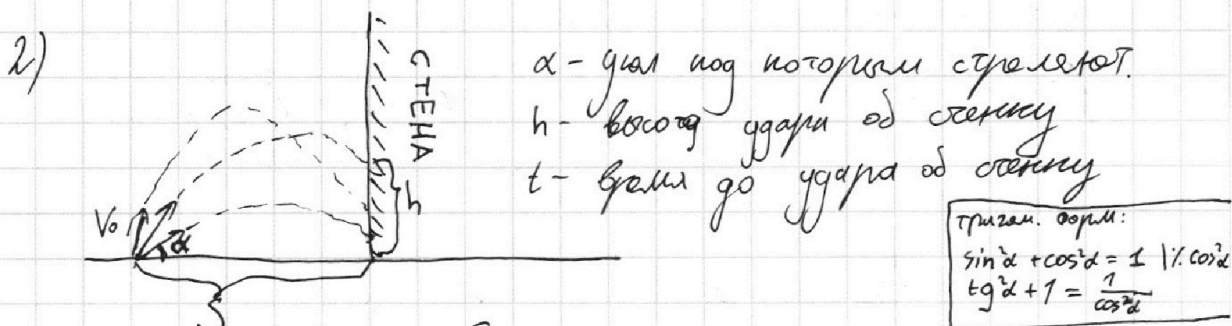 2)
СТЕНА
α - угол под которым стреляют.
h - высота удара об стенку
t - время до удара об стенку
V₀
α
h
тригон. форм:
sin²α + cos²α = 1 |% cos²α
tg²α + 1 = 1/cos²α